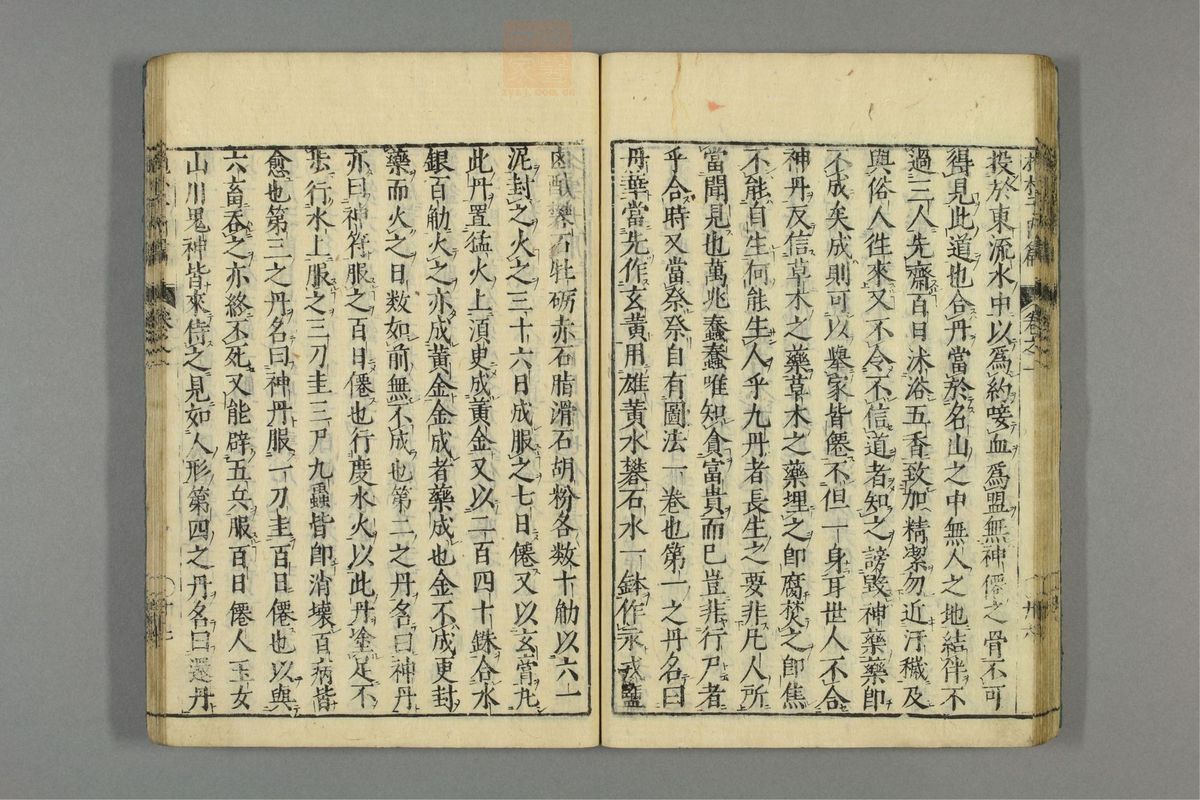 投於東流水中以爲約唼血爲盟無神僊之骨不可
得見此道也合丹當於名山之中無人之地結伴不
過三人先齋百日沐浴五香致加精潔勿近汙穢及
與俗人徃來又不令不信道者知之謗毀神藥藥卽
不成矣成則可以擧家皆僊不但一身耳世人不合
神丹反信草木之藥草木之藥埋之卽腐焚之卽焦
不能自生何能生人乎九丹者長生之要非凡人所
當聞見也萬兆蠢蠢唯知貪富貴而已豈非行尸者
乎合時又當祭祭自有圖法一卷也第一之丹名曰
丹華當先作玄黃用雄黃水礬石水一鉢作汞戎鹽
鹵醎礬石牡礪赤石脂滑石胡粉各數十觔以六一
泥封之火之三十六日成服之七日僊又以玄膏丸
此丹置猛火上湏臾成黃金又以二百四十銖合水
銀百觔火之亦成黃金金成者藥成也金不成更封
藥而火之日数如前無不成也第二之丹名曰神丹
亦曰神符服之百日僊也行度水火以此丹塗足下
步行水上服之三刀圭三尸九蟲皆卽消壞百病皆
愈也第三之丹名曰神丹服一刀圭百日僊也以與
六畜吞之亦終不死又能辟五兵服百日僊人玉女
山川鬼神皆來侍之見如人形第四之丹名曰還丹